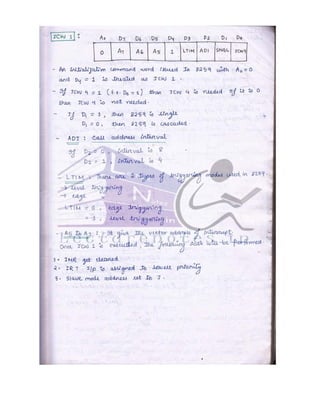 ICW 1 :
A0 D7 D6 D5 D4 D3 D2 D1 D0
0 A7 A6 A5 1 LTIM ADI SNGL ICW4
- An initialization command word issued to 8259 with A0 = 0
and D4 = 1 is treated as ICW 1.
- If ICW 4 = 1 (i.e. D0 = 1) than ICW 4 is needed if it is 0
than ICW 4 is not needed.
- If D1 = 1, then 8259 is single
D1 = 0, then 8259 is cascaded
- ADI : Call address interval
If D2 = 0, interval is 8
D2 = 1, interval is 4
- LTIM - There are 2 types of triggering modes used in 8259
→ level triggering
→ edge
LTIM = 0, edge triggering
= 1, level triggering
- A5 to A7 : It give the vector address of interrupt.
Once ICW 1 is executed, the following will be performed
1. IMR get cleared
2. IR7 i/p is assigned to lowest priority
3. Slave mode address set to 7.